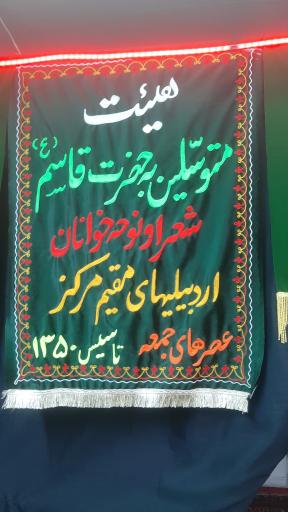 هیئت
متوسلین به حضرت قاسم (ع)
شعرا و نوحه خوانان
اردبیلیهای مقیم مرکز
عصرهای جمعه تاسیس ۱۳۵۰